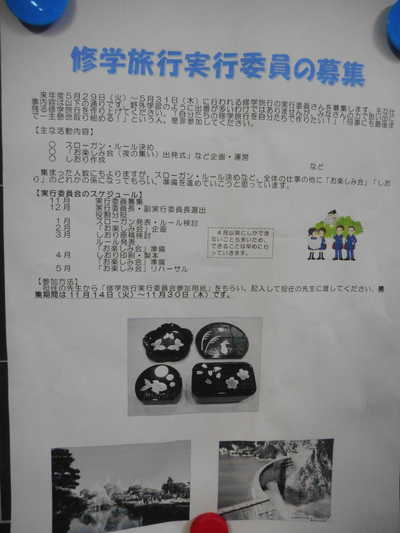 修学旅行実行委員の募集
来年度5月29日（火）～5月31日（木）に行われる修学旅行の実行委員さんを募集します。主な仕
【主な活動内容】
○ スローガン・ルール決め
○ 「お楽しみ会（夜の集い）出発式」など企画・運営
○ しおり作成
など
集まった人数にもよりますが、スローガン・ルール決めなど、全体の仕事の他に「お楽しみ会」「しお
り」のどれかの係になってもらい、準備を進めていこうと思っています。
【実行委員会のスケジュール】
11月 実行委員募集
12月 実行委員長・副実行委員長選出
役割分担
1月 スローガン発表・ルール検討
2月 「お楽しみ会」企画
3月 しおり原稿検討
ルール発表
「お楽しみ会」準備
4月 しおり印刷・製本
「お楽しみ会」準備
5月 「お楽しみ会」リハーサル
4月以来にしかでき
ないことも多いため、
できることは早めに行
っていきます。
【参加方法】
担任の先生から「修学旅行実行委員会参加用紙」をもらい、記入して担任の先生に渡してください。募
集期間は11月14日（火）～11月30日（木）です。